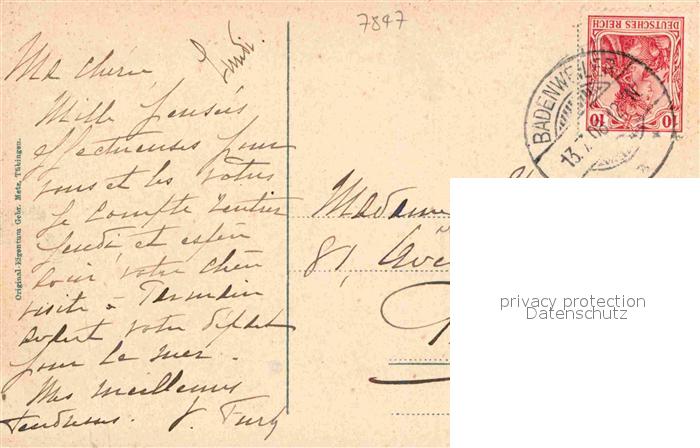 7847
Lundi.
Ma chérie,
Mille pensées
affectueuses pour
vous et les vôtres
Je compte rentrer
jeudi et espère
avoir votre chère
visite à
avant votre départ
pour la mer.
Mes meilleures
tendresses. J.
Original-Eigentum Gebr. Metz, Tübingen.
DEUTSCHES REICH
10 10
BADENWEILER
13.7.
Madame
81, Ave
privacy protection
Datenschutz